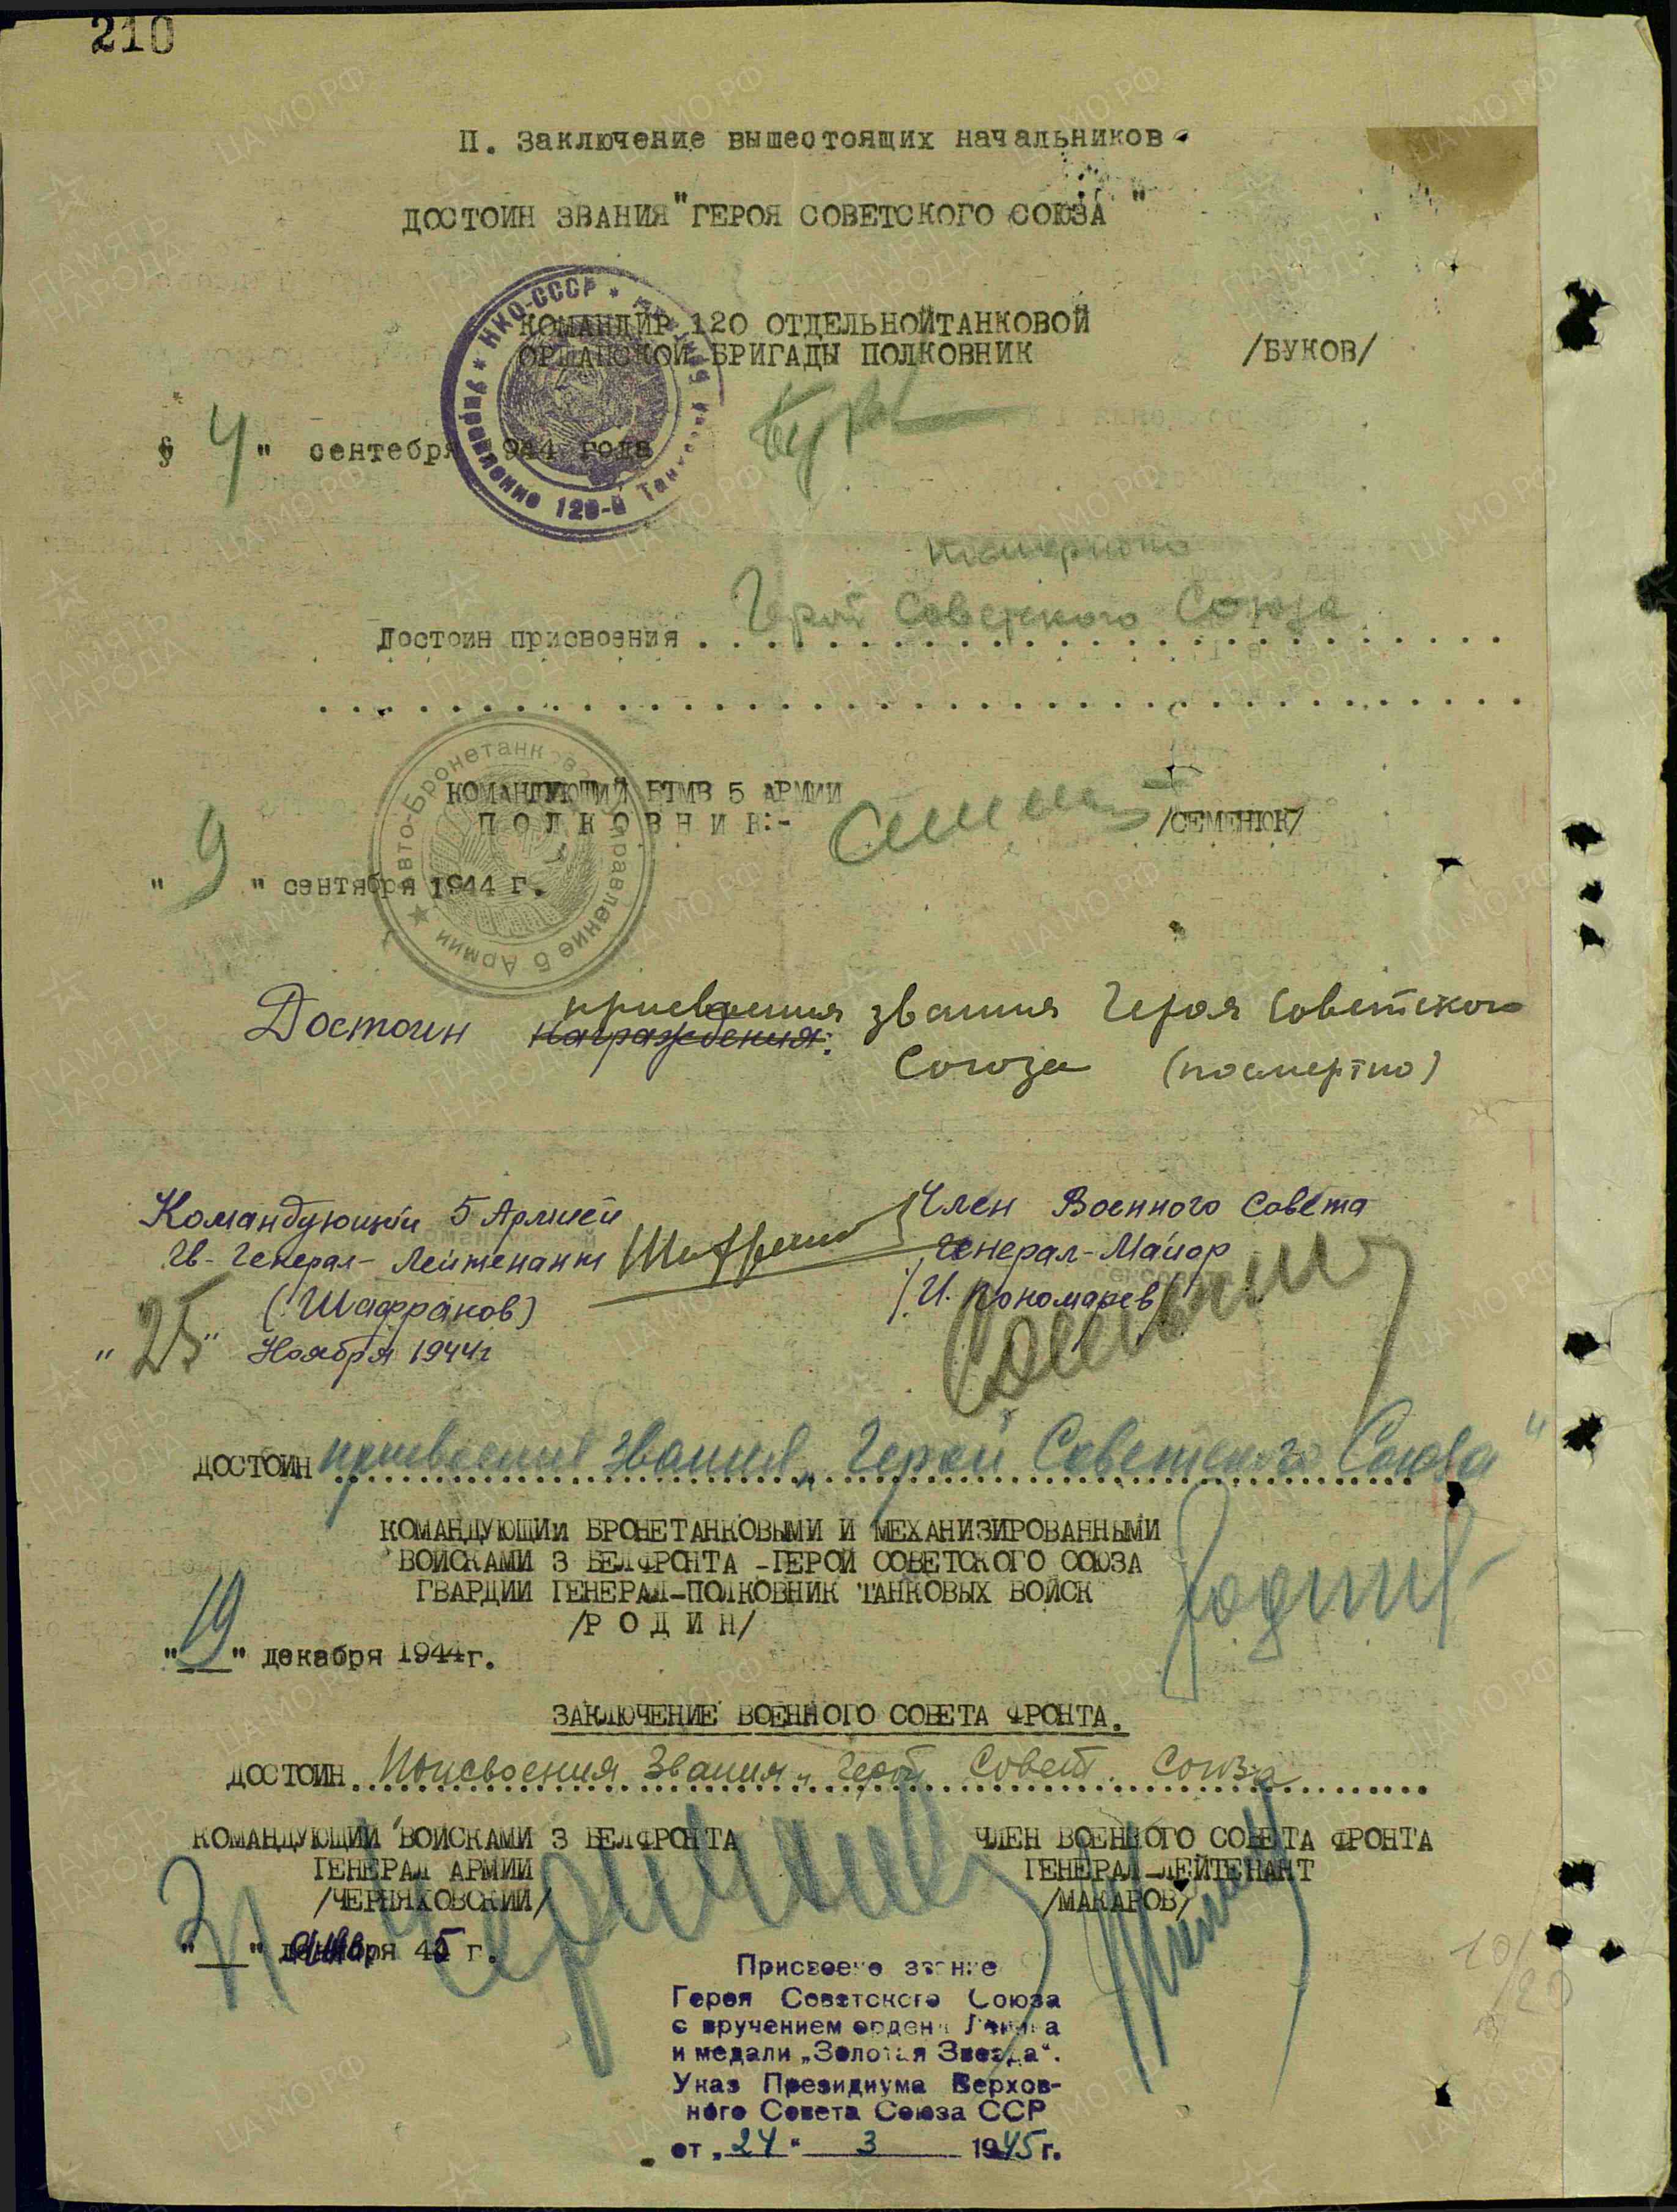 210
II. Заключение вышестоящих начальников.
ДОСТОИН ЗВАНИЯ "ГЕРОЯ СОВЕТСКОГО СОЮЗА"
КОМАНДИР 120 ОТДЕЛЬНОЙТАНКОВОЙ
ОРШАНСКОЙ БРИГАДЫ ПОЛКОВНИК /БУКОВ/
"4" сентебря 944 года
НКО-СССР * Управление 120-й Танк
посмертно
Герой Советского Союза
Достоин присвоения
КОМАНДУЮЩИЙ БТМВ 5 АРМИИ
ПОЛКОВНИК:- /СЕМЕНЮК/
"9" сентября 1944 г.
Авто-Бронетанково Управление 5 Армии
присвоения звания Героя Советского
Достоин награждения:
Союза (посмертно)
Командующий 5 Армией Член Военного Совета
Гв-Генерал-Лейтенант Генерал-Майор
(Шафранов) /И. Пономарев/
"25" Ноября 1944г
ДОСТОИН присвоения звания „Герой Советского Союза"
КОМАНДУЮЩИй БРОНЕТАНКОВЫМИ И МЕХАНИЗИРОВАННЫМИ
ВОЙСКАМИ 3 БЕЛФРОНТА -ГЕРОЙ СОВЕТСКОГО СОЮЗА
ГВАРДИИ ГЕНЕРАЛ-ПОЛКОВНИК ТАНКОВЫХ ВОЙСК
/Р О Д И Н/ Родин
"19" декабря 1944г.
ЗАКЛЮЧЕНИЕ ВОЕННОГО СОВЕТА ФРОНТА.
ДОСТОИН Присвоения Звания „Герой Совет. Союза
КОМАНДУЮЩИЙ ВОЙСКАМИ 3 БЕЛФРОНТА ЧЛЕН ВОЕННОГО СОВЕТА ФРОНТА
ГЕНЕРАЛ АРМИИ ГЕНЕРАЛ-ЛЕЙТЕНАНТ
/ЧЕРНЯХОВСКИЙ/ /МАКАРОВ/
января 45 г.
Присвоено звание
Героя Советского Союза
с вручением ордена Ленина
и медали „Золотая Звезда".
Указ Президиума Верхов-
ного Совета Союза ССР
от „24" 3 1945 г.
ЦА МО РФ
ПАМЯТЬ НАРОДА